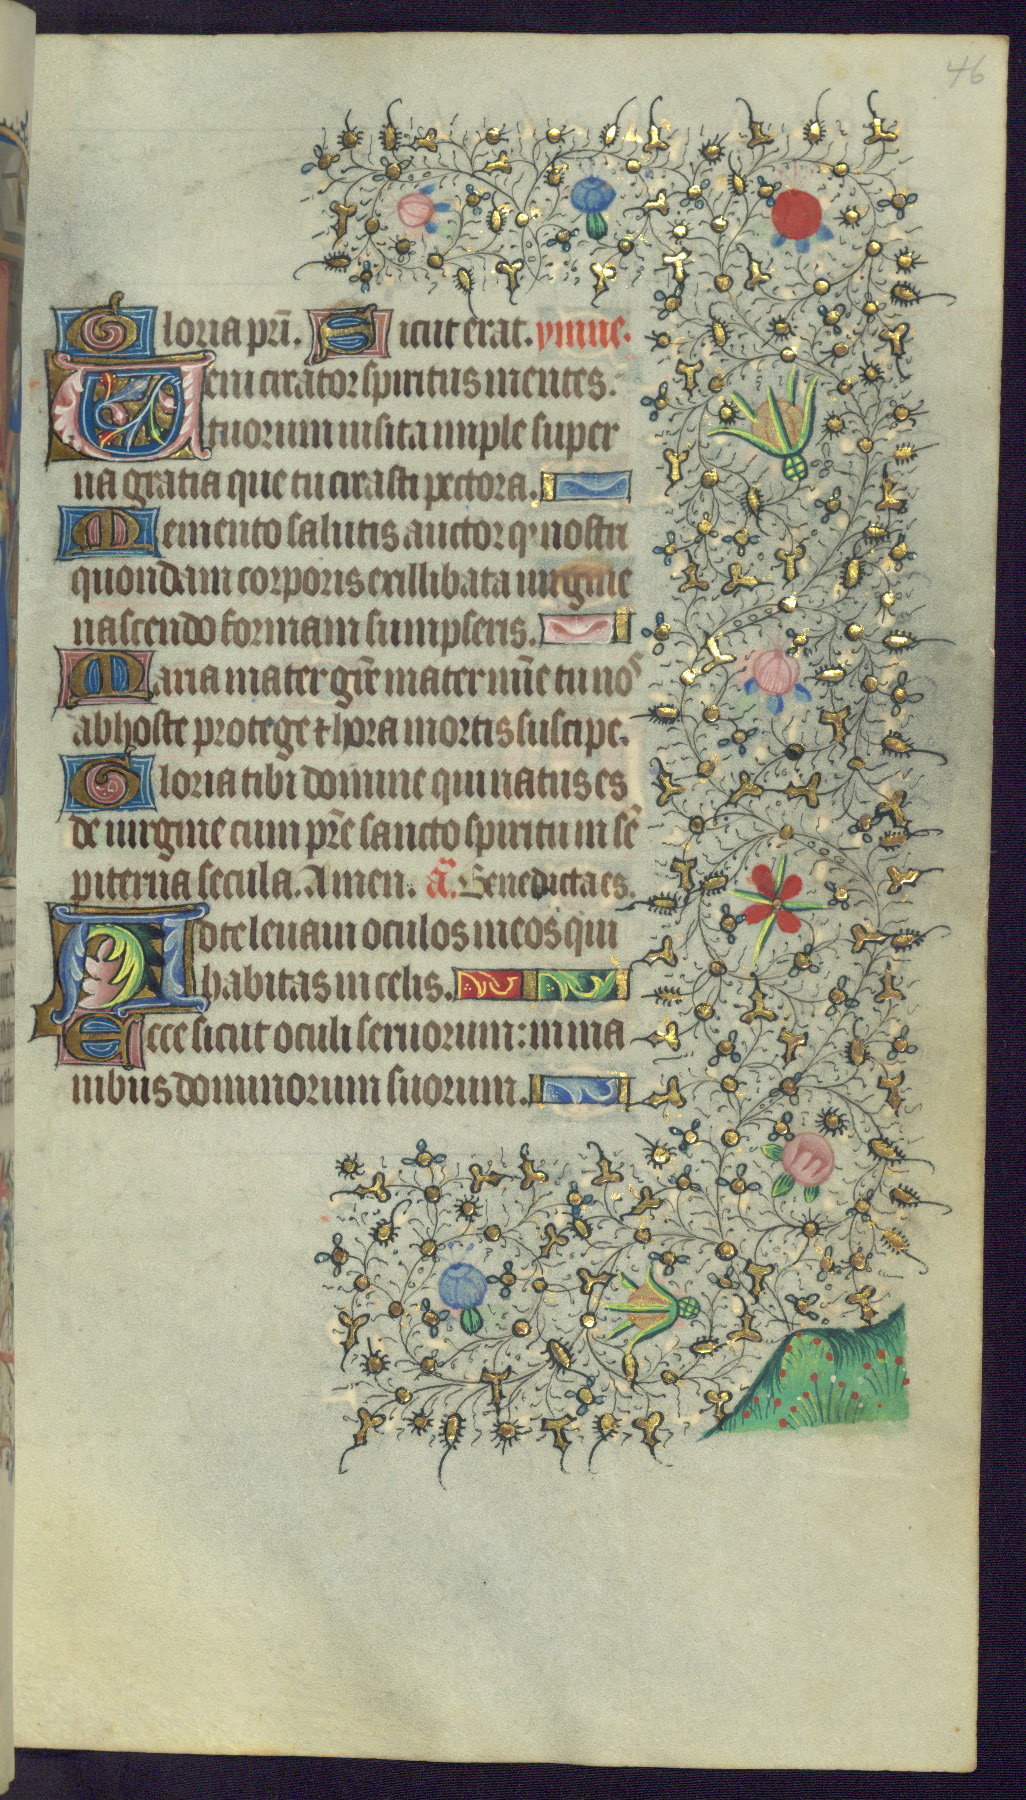 46
Gloria pr̄i. Sicut erat. ymne.
Veni creator spiritus mentes.
tuorum uisita imple super
na gratia que tu creasti pectora.
Memento salutis auctor qͥ nostri
quondam corporis exillibata uirgine
nascendo formam sumpseris.
Maria mater gr̄e mater mīe tu nos
ab hoste protege ⁊ hora mortis suscipe.
Gloria tibi domine qui natus es
de uirgine cum pr̄e sancto spiritu in sē
piterna secula. Amen. a᷈. Benedicta es.
Ad te leuaui oculos meos qui
habitas in celis.
Ecce sicut oculi seruorum: in ma
nibus dominorum suorum.